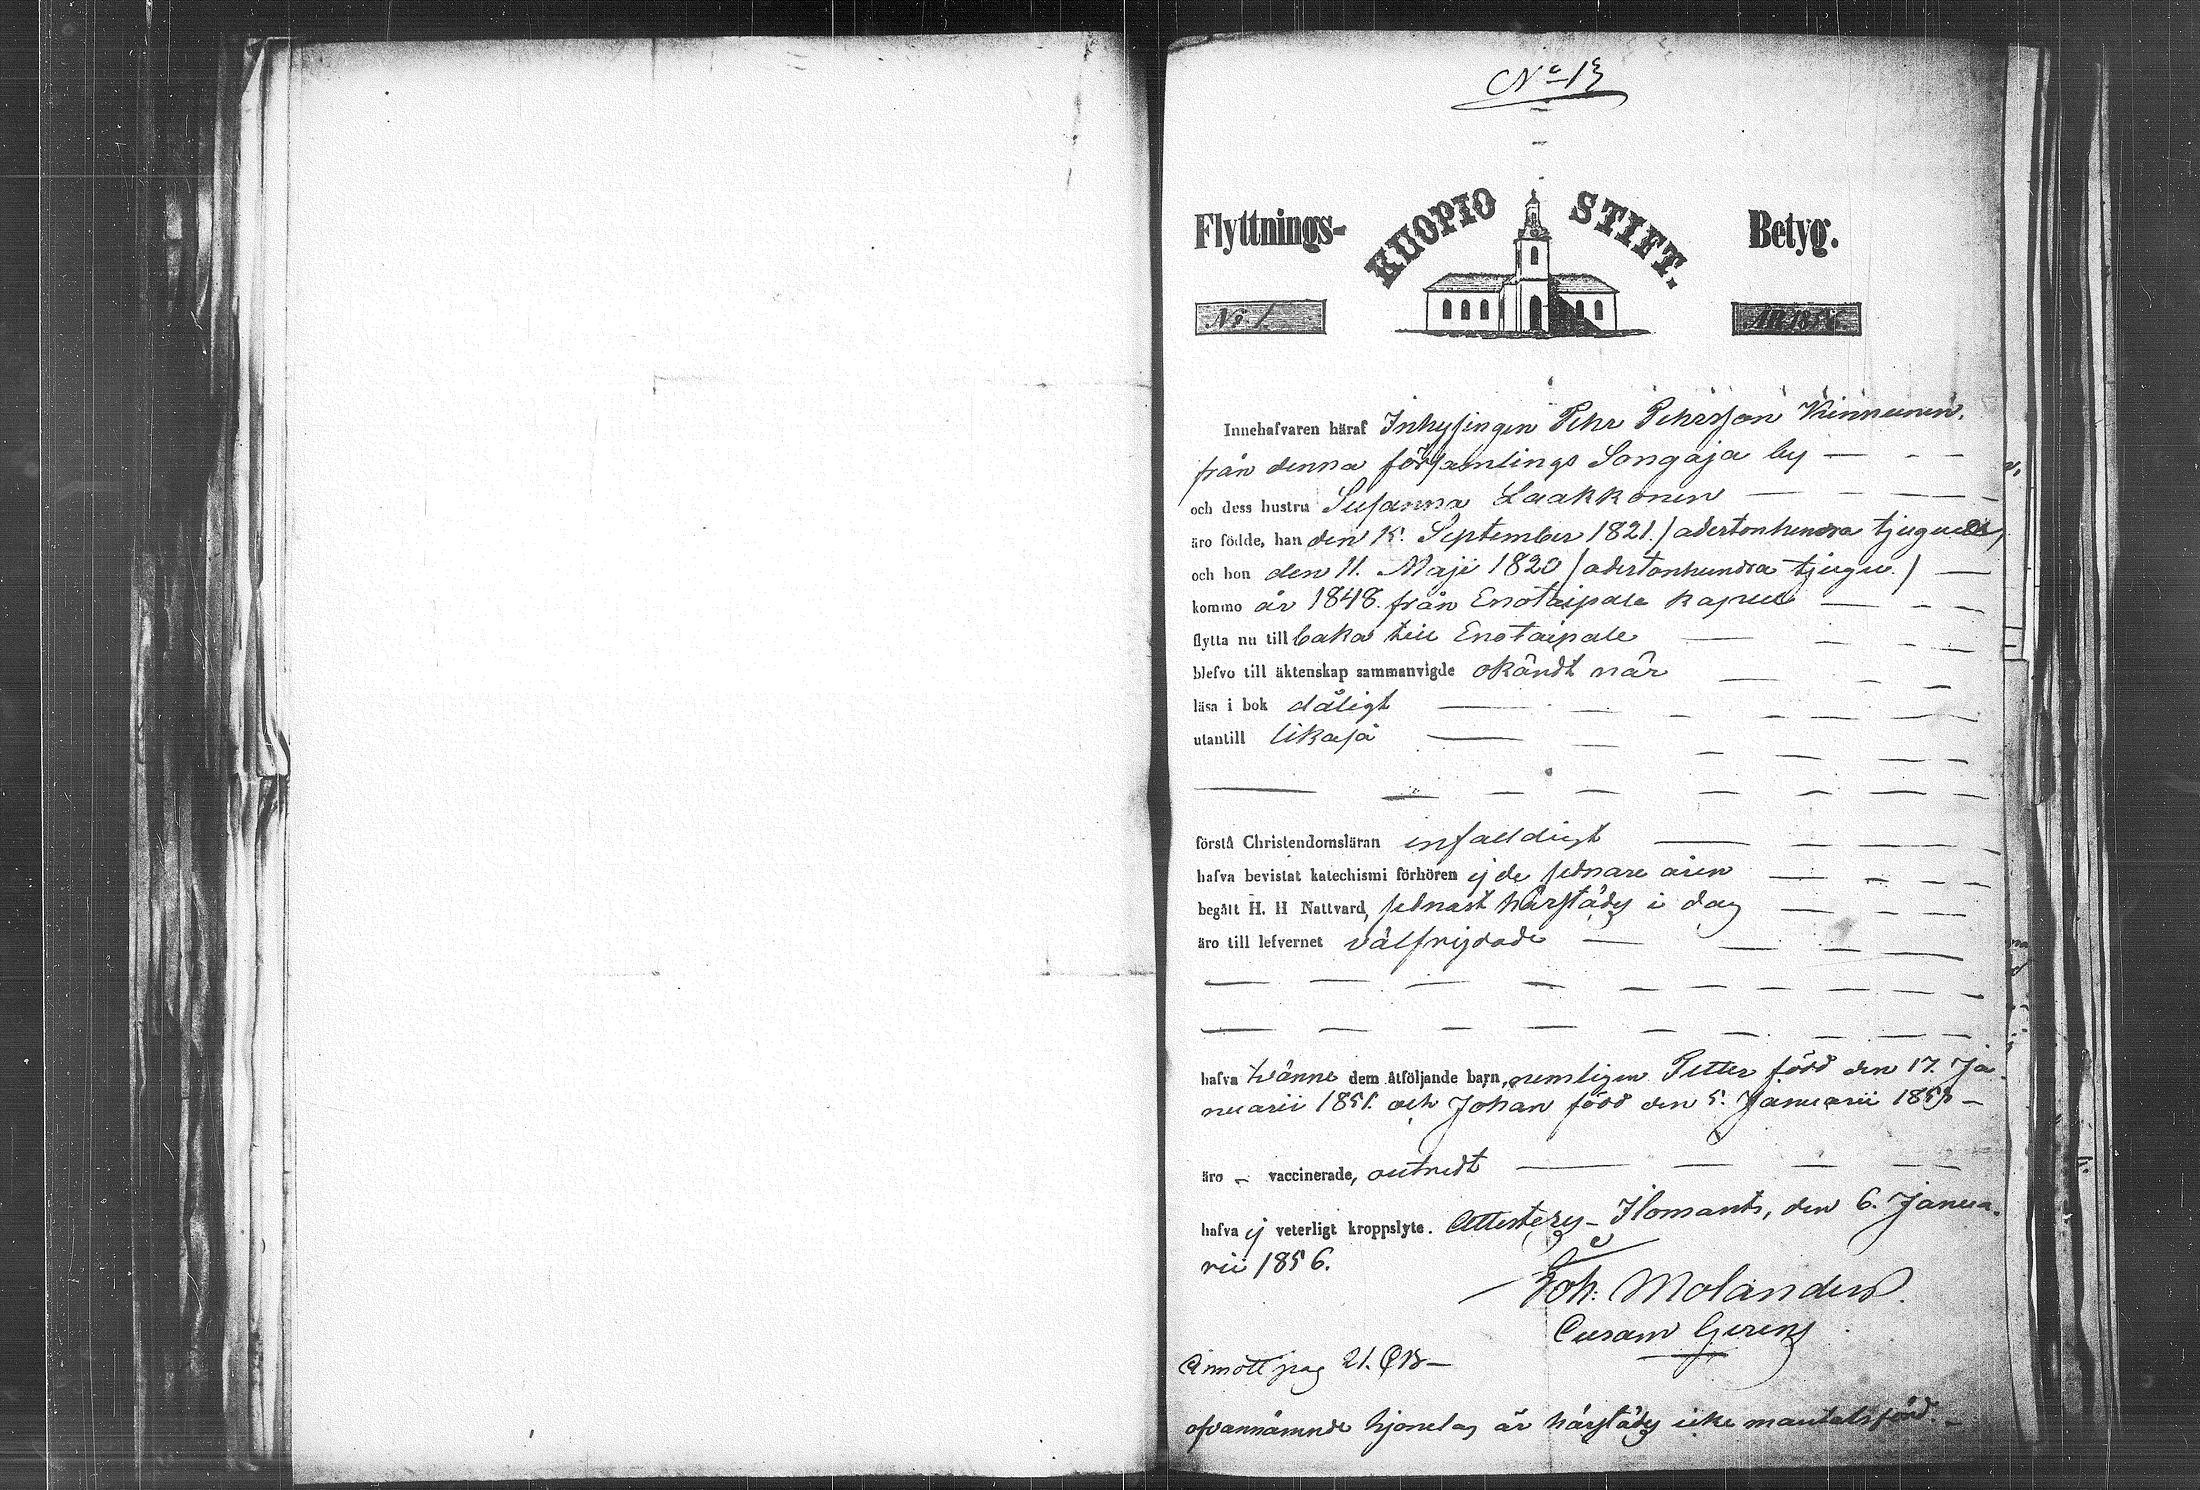 No 13
Flyttnings- KUOPIO STIFT. Betyg.
No 1 År 1856.
Innehafvaren häraf Inhysingen Pehr Pehrsson Kinnunen,
från denna församlings Songaja by
och dess hustru Susanna Laakkonen
äro födde, han den 15. September 1821. /adertonhundra tjuguett/
och hon den 11. Maji 1820 /adertonhundra tjugu./
kommo år 1848. från Enotaipale kapell
flytta nu till baka till Enotaipale
blefvo till äktenskap sammanvigde okändt när
läsa i bok dåligt
utantill likaså
förstå Christendomsläran enfalldigt
hafva bevistat katechismi förhören ej de sednare åren
begått H. H Nattvard, sednast härstädes i dag
äro till lefvernet välfrejdade
hafva tvänne dem åtföljande barn, nemligen Petter född den 17. Ja-
nuarii 1851. och Johan född den 5. Januarii 1853 –
äro – vaccinerade, outredt
hafva ej veterligt kroppslyte. Attesterer – Ilomants, den 6. Janua-
rii 1856.
Joh: Molander.
Curam Gerens
Anmält pag 21.
ofvannämnde hjonelag är härstädes icke mantalsförd. –